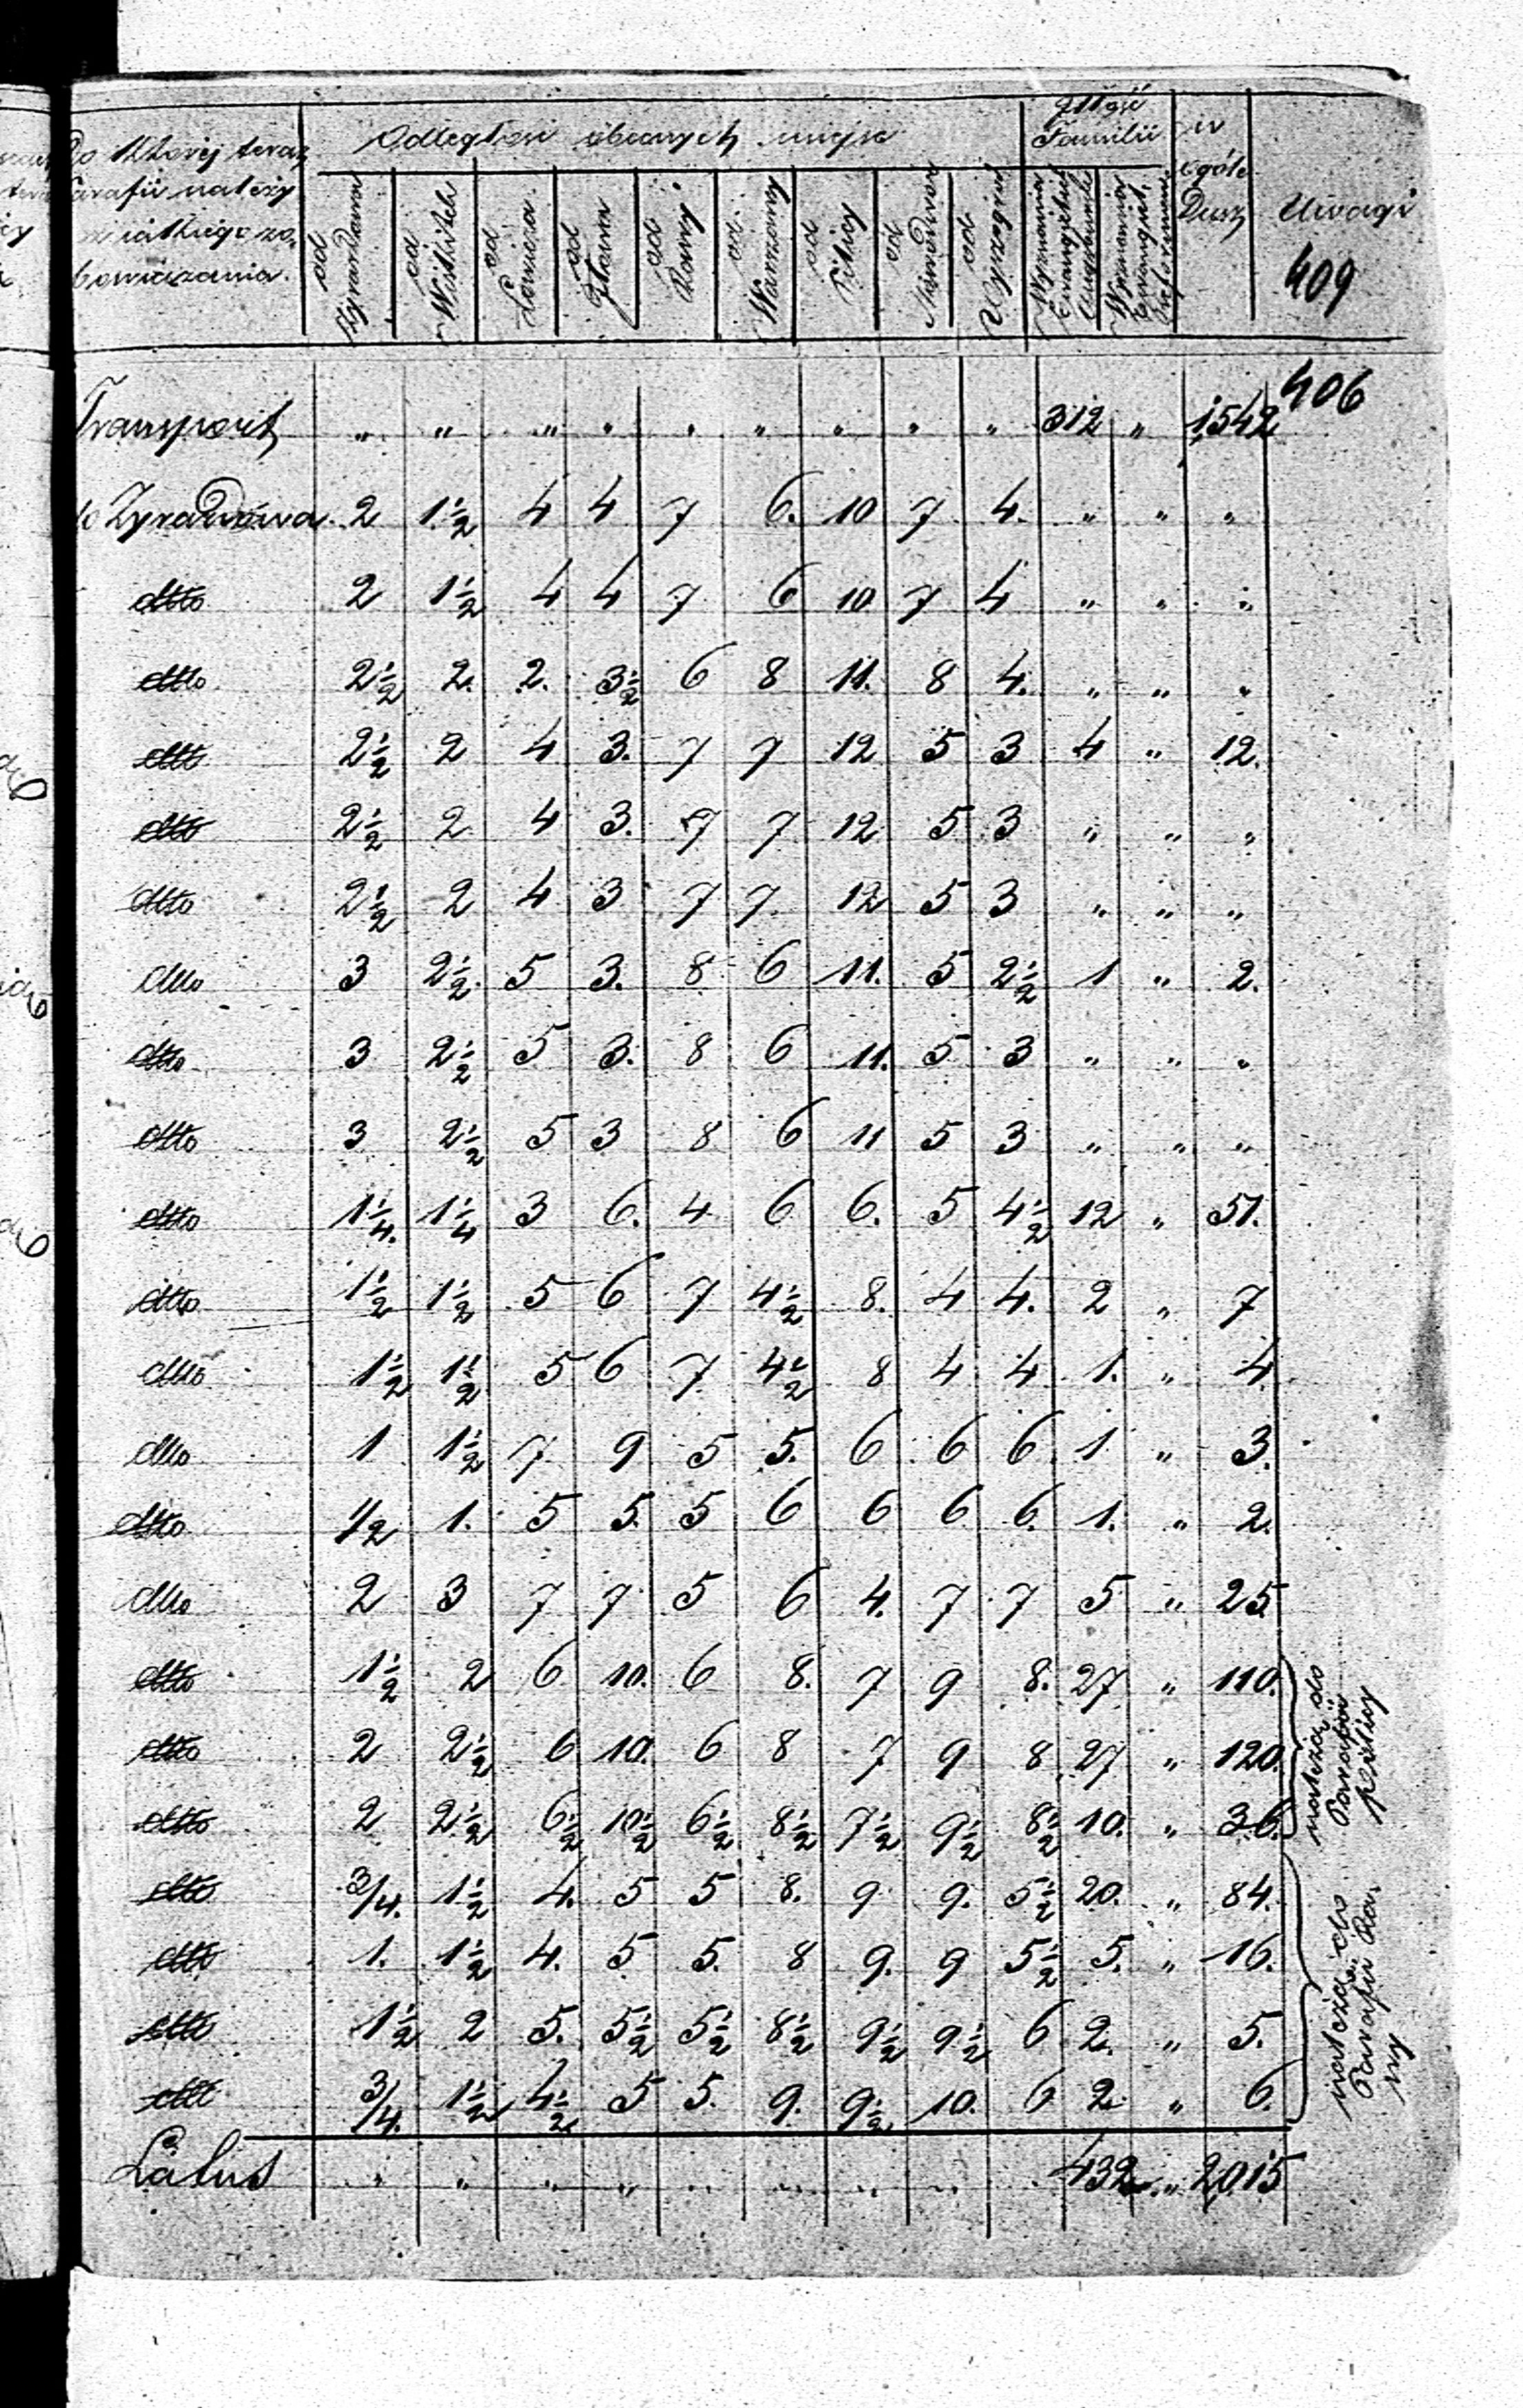 do której teraz Odległość obecnych miejsc Ilość Familii w
Parafii należy ogóle
z jakiego zo- Dusz Uwagi
bowiązania.
od Żyrardowa od Wiskitek od Łowicza od Iłowa od Rawy od Warszawy od Pilicy od od Wyszogrodu Wyznania Ewangelicko Augsburski Wyznania Ewangelick. Reformow.
409
406
Transport " " " " " " " " " 312 " 1,542
do Żyrardowa. 2 1½ 4 4 7 6. 10 7 4. " " "
dtto 2 1½ 4 4 7 6 10 7 4 " " "
dtto 2½ 2. 2. 3½ 6 8 11. 8 4. " " "
dtto 2½ 2 4 3. 7 7 12 5 3 4 " 12.
dtto 2½ 2 4 3. 7 7 12 5 3 " " "
dtto 2½ 2 4 3 7 7. 12 5 3 " " "
dtto 3 2½. 5 3. 8 6 11. 5 2½ 1 " 2.
dtto 3 2½ 5 3. 8 6 11. 5 3 " " "
dtto 3 2½ 5 3 8 6 11 5 3 " " "
dtto 1¼. 1¼ 3 6. 4 6 6. 5 4½ 12 " 51.
dtto 1½ 1½ 5 6 7 4½ 8. 4 4. 2 " 7
dtto 1½ 1½ 5 6 7 4½ 8 4 4 1. " 4
dtto 1 1½ 7 9 5 5. 6 6 6. 1. " 3.
dtto ½ 1. 5 5. 5 6 6 6 6. 1. " 2.
dtto 2 3 7 7 5 6 4. 7 7 5 " 25
dtto 1½ 2 6 10. 6 8. 7 9 8. 27 " 110.
dtto 2 2½ 6 10. 6 8 7 9 8 27 " 120.
dtto 2 2½ 6½ 10½ 6½ 8½ 7½ 9½ 8½ 10. " 36.
należą do
Parafii
Pilicy
dtto ¾. 1½ 4. 5 5 8. 9 9. 5½ 20. " 84.
dtto 1. 1½ 4. 5 5. 8 9. 9 5½ 5. " 16.
dtto 1½ 2 5. 5½ 5½ 8½ 9½ 9½ 6 2. " 5.
dtto ¾. 1½ 4½ 5 5. 9. 9½ 10. 6 2 " 6.
należą do
Parafii Ra-
wy
Latus " " " " " " " " 432 " 2,015